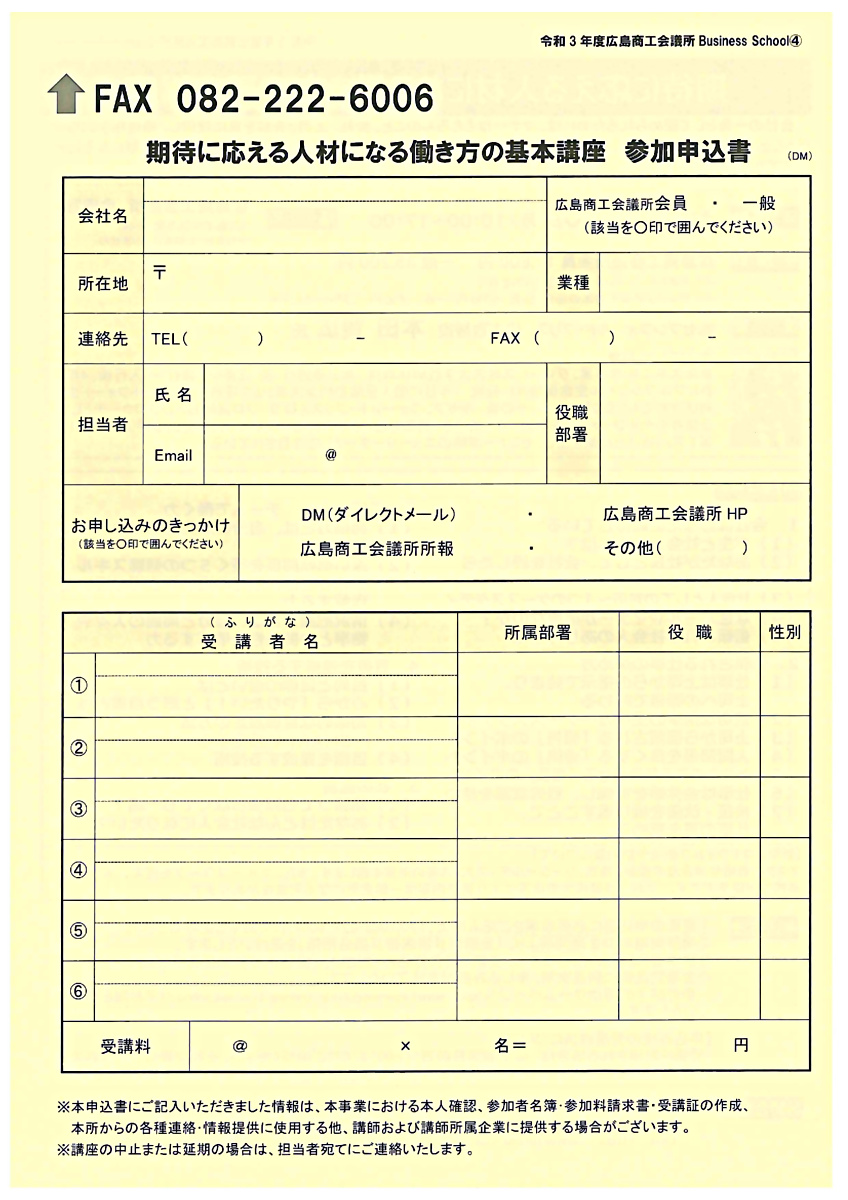 令和3年度広島商工会議所 Business School④
FAX 082-222-6006
期待に応える人材になる働き方の基本講座 参加申込書 (DM)
会社名
広島商工会議所会員 ・ 一般
(該当を○印で囲んでください)
所在地 〒 業種
連絡先 TEL( ) － FAX ( ) －
担当者 氏名 役職部署
Email @
お申し込みのきっかけ
(該当を○印で囲んでください)
DM(ダイレクトメール) ・ 広島商工会議所 HP
広島商工会議所所報 ・ その他( )
(ふりがな)
受講者名 所属部署 役職 性別
①
②
③
④
⑤
⑥
受講料 @ × 名＝ 円
※本申込書にご記入いただきました情報は、本事業における本人確認、参加者名簿・参加料請求書・受講証の作成、
本所からの各種連絡・情報提供に使用する他、講師および講師所属企業に提供する場合がございます。
※講座の中止または延期の場合は、担当者宛てにご連絡いたします。